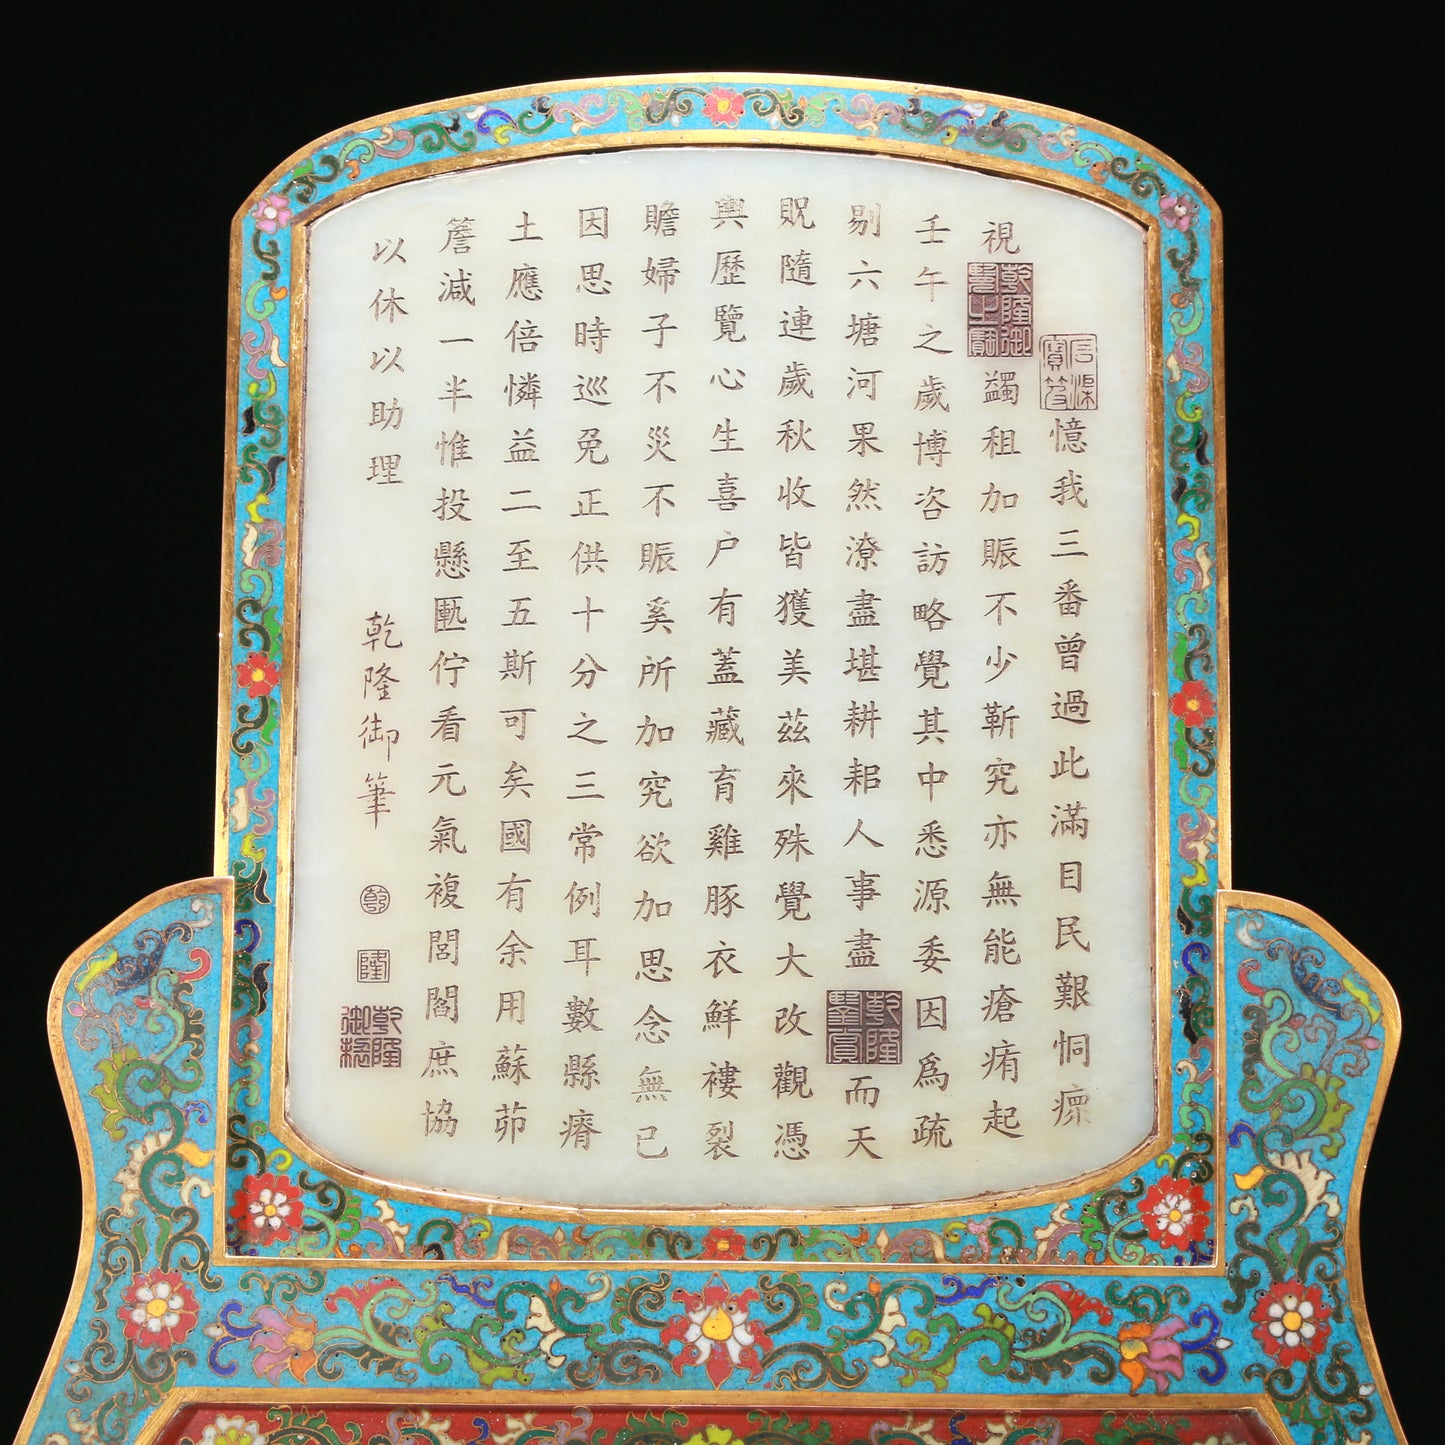 憶我三番曾過此滿目民艱恫瘝
視
乾隆御覽之寶
蠲租加賑不少靳究亦無能瘡痏起
壬午之歲博咨訪略覺其中悉源委因為疏
剔六塘河果然潦盡堪耕耜人事盡
乾隆鑒賞
而天
貺隨連歲秋收皆獲美茲來殊覺大改觀憑
輿歷覽心生喜户有蓋藏育雞豚衣鮮褸裂
贍婦子不災不賑奚所加究欲加思念無已
因思時巡免正供十分之三常例耳數縣瘠
土應倍憐益二至五斯可矣國有余用蘇茆
簷減一半惟投懸匭佇看元氣複閭閻庶協
以休以助理
乾隆御筆
乾
隆